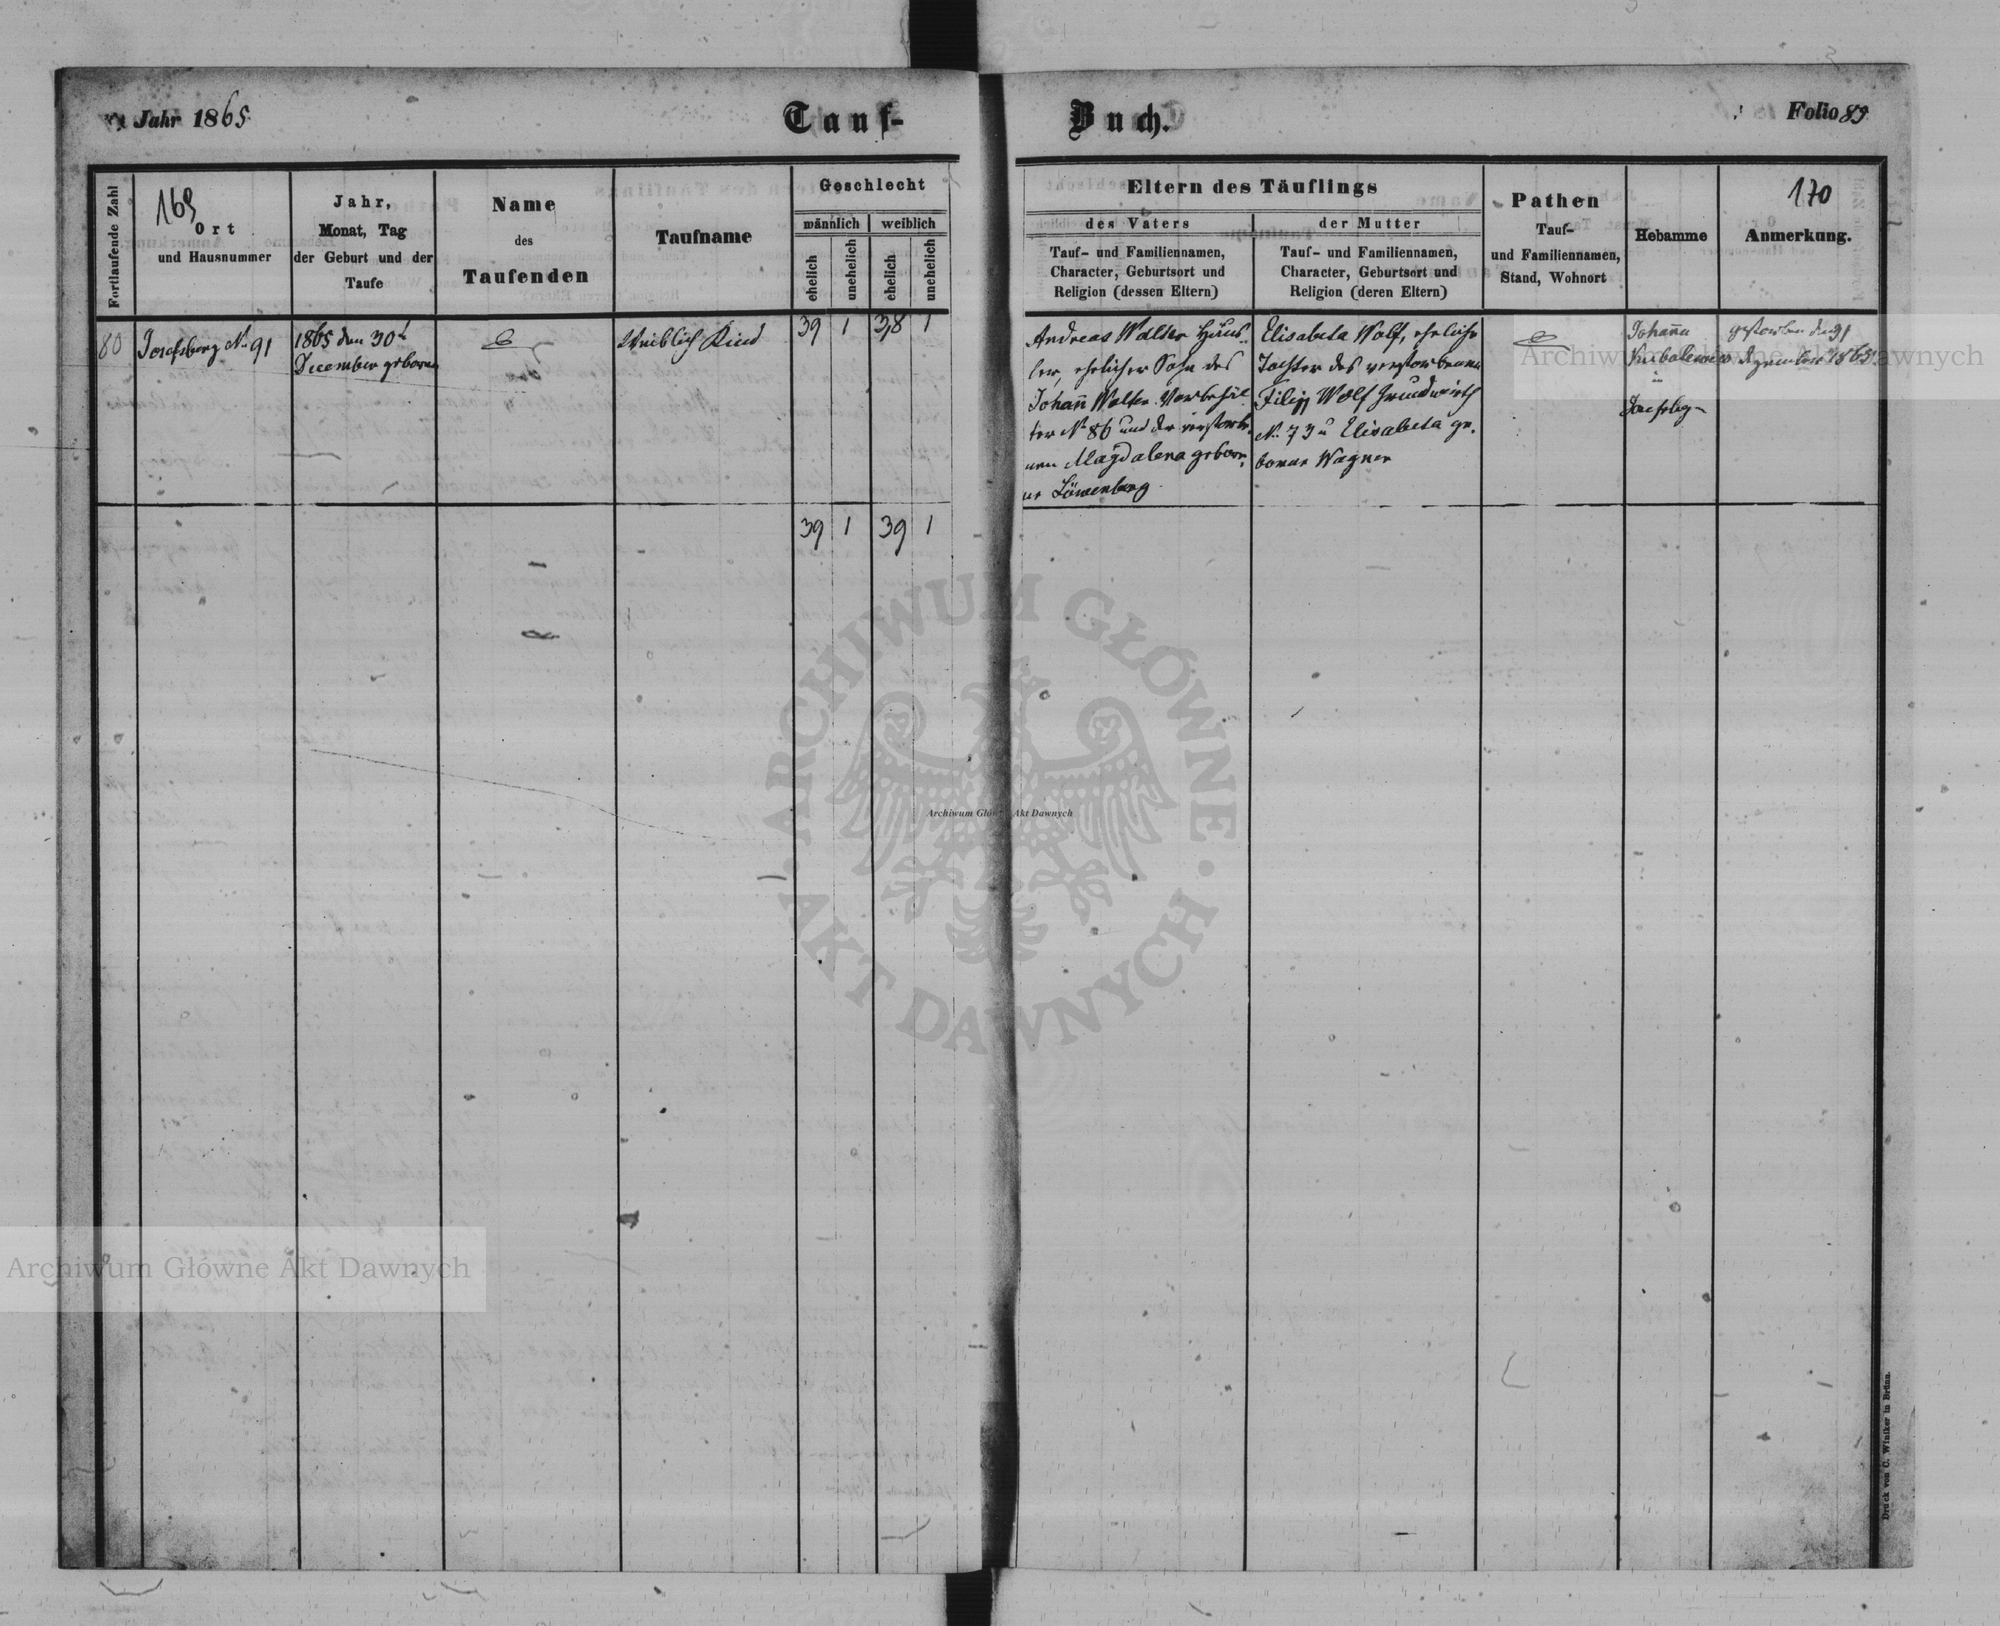 Jahr 1865
Tauf-
Buch.
Folio 89
Fortlaufende Zahl
169
Ort
und Hausnummer
Jahr,
Monat, Tag
der Geburt und der
Taufe
Name
des
Taufenden
Taufname
Geschlecht
männlich
weiblich
ehelich
unehelich
ehelich
unehelich
Eltern des Täuflings
des Vaters
Tauf- und Familiennamen,
Character, Geburtsort und
Religion (dessen Eltern)
der Mutter
Tauf- und Familiennamen,
Character, Geburtsort und
Religion (deren Eltern)
Pathen
Tauf-
und Familiennamen,
Stand, Wohnort
Hebamme
170
Anmerkung.
80
Josefsberg No 91
1865 den 30t
December geboren
Weiblich Kind
39 1 38 1
Andreas Walter Häus-
ler, ehelicher Sohn des
Johann Walter Vorbehäl-
ter No 86 und der verstorbe-
nen Magdalena gebor-
ne Löwenberg
Elisabeta Wolf, eheliche
Tochter des verstorbenen
Filipp Wolf Grundwirth
No 73 u Elisabeta ge-
borene Wagner
Johanna
in
Josefsbg
gestorben den 31
Dezember 1865.
39 1 39 1
ARCHIWUM GŁÓWNE
AKT DAWNYCH
Archiwum Główne Akt Dawnych
Archiwum Główne Akt Dawnych
Archiwum Główne Akt Dawnych
Druck von C. Winiker in Brünn.